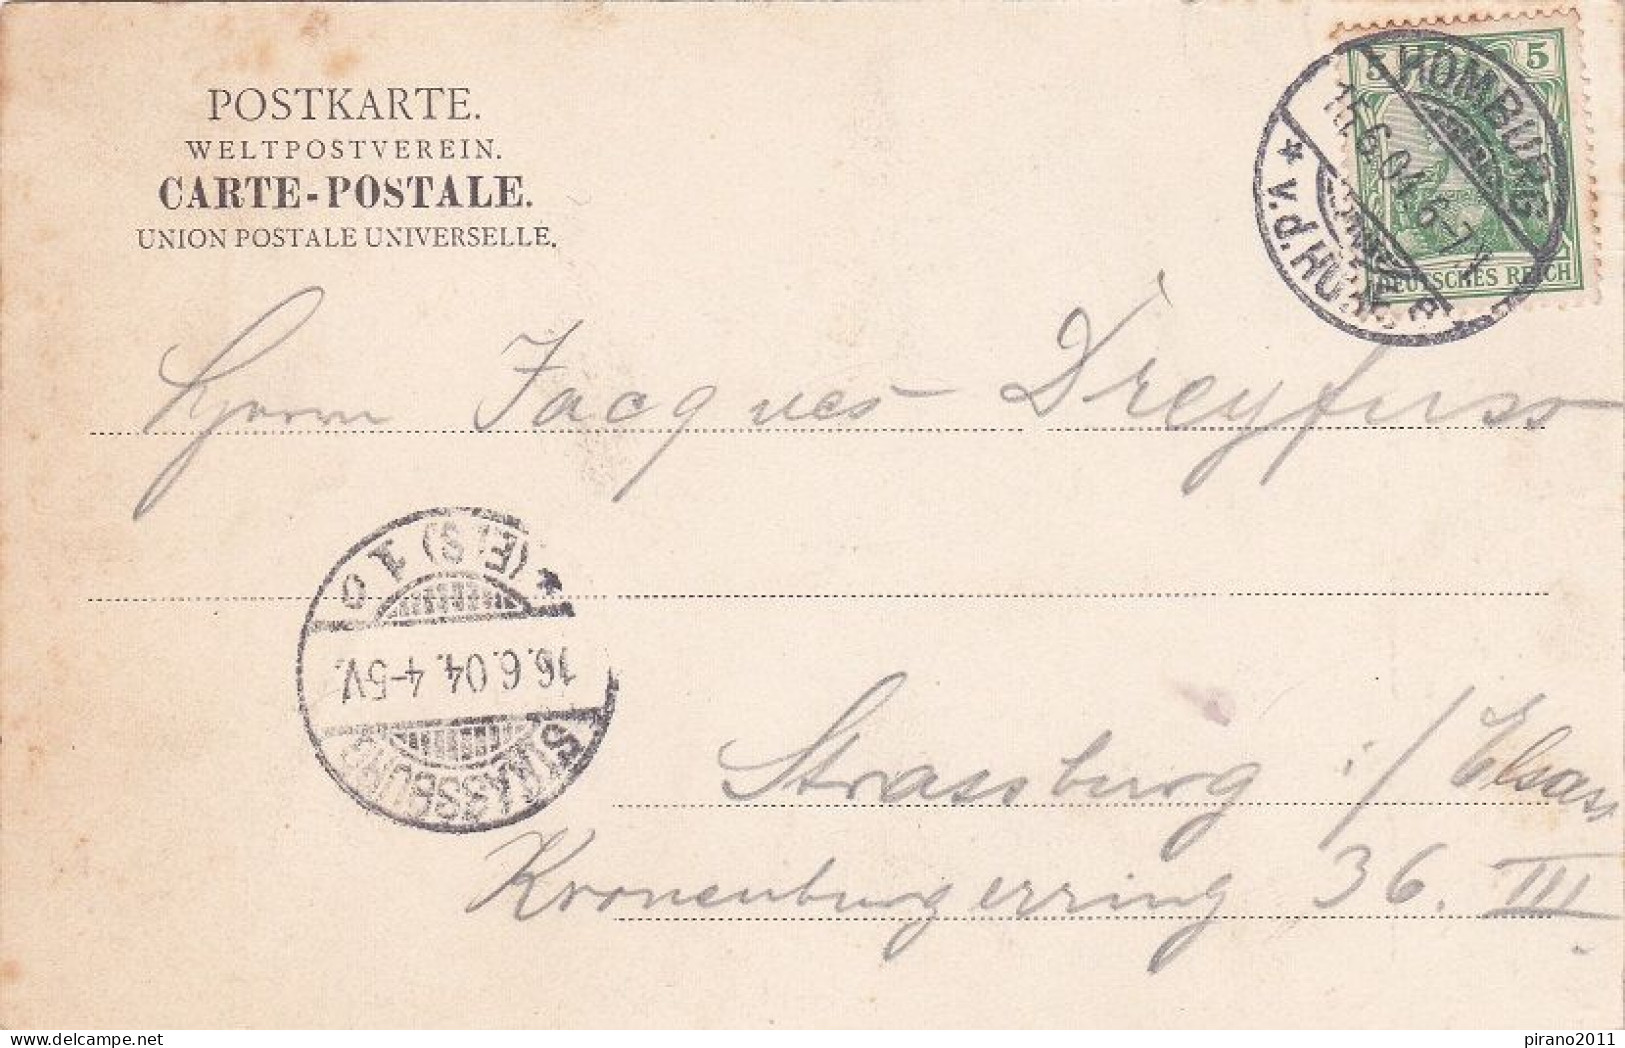 POSTKARTE.
WELTPOSTVEREIN.
CARTE-POSTALE.
UNION POSTALE UNIVERSELLE.
5 5
DEUTSCHES REICH
HOMBURG
6.04. 6-7
* v.d. HÖHE
Herrn Jacques Dreyfuss
STRASSBURG
16.6.04. 4-5V.
* (ELS) 10
Strassburg i/Elsass
Kronenburgerring 36. III
delcampe.net
pirano2011